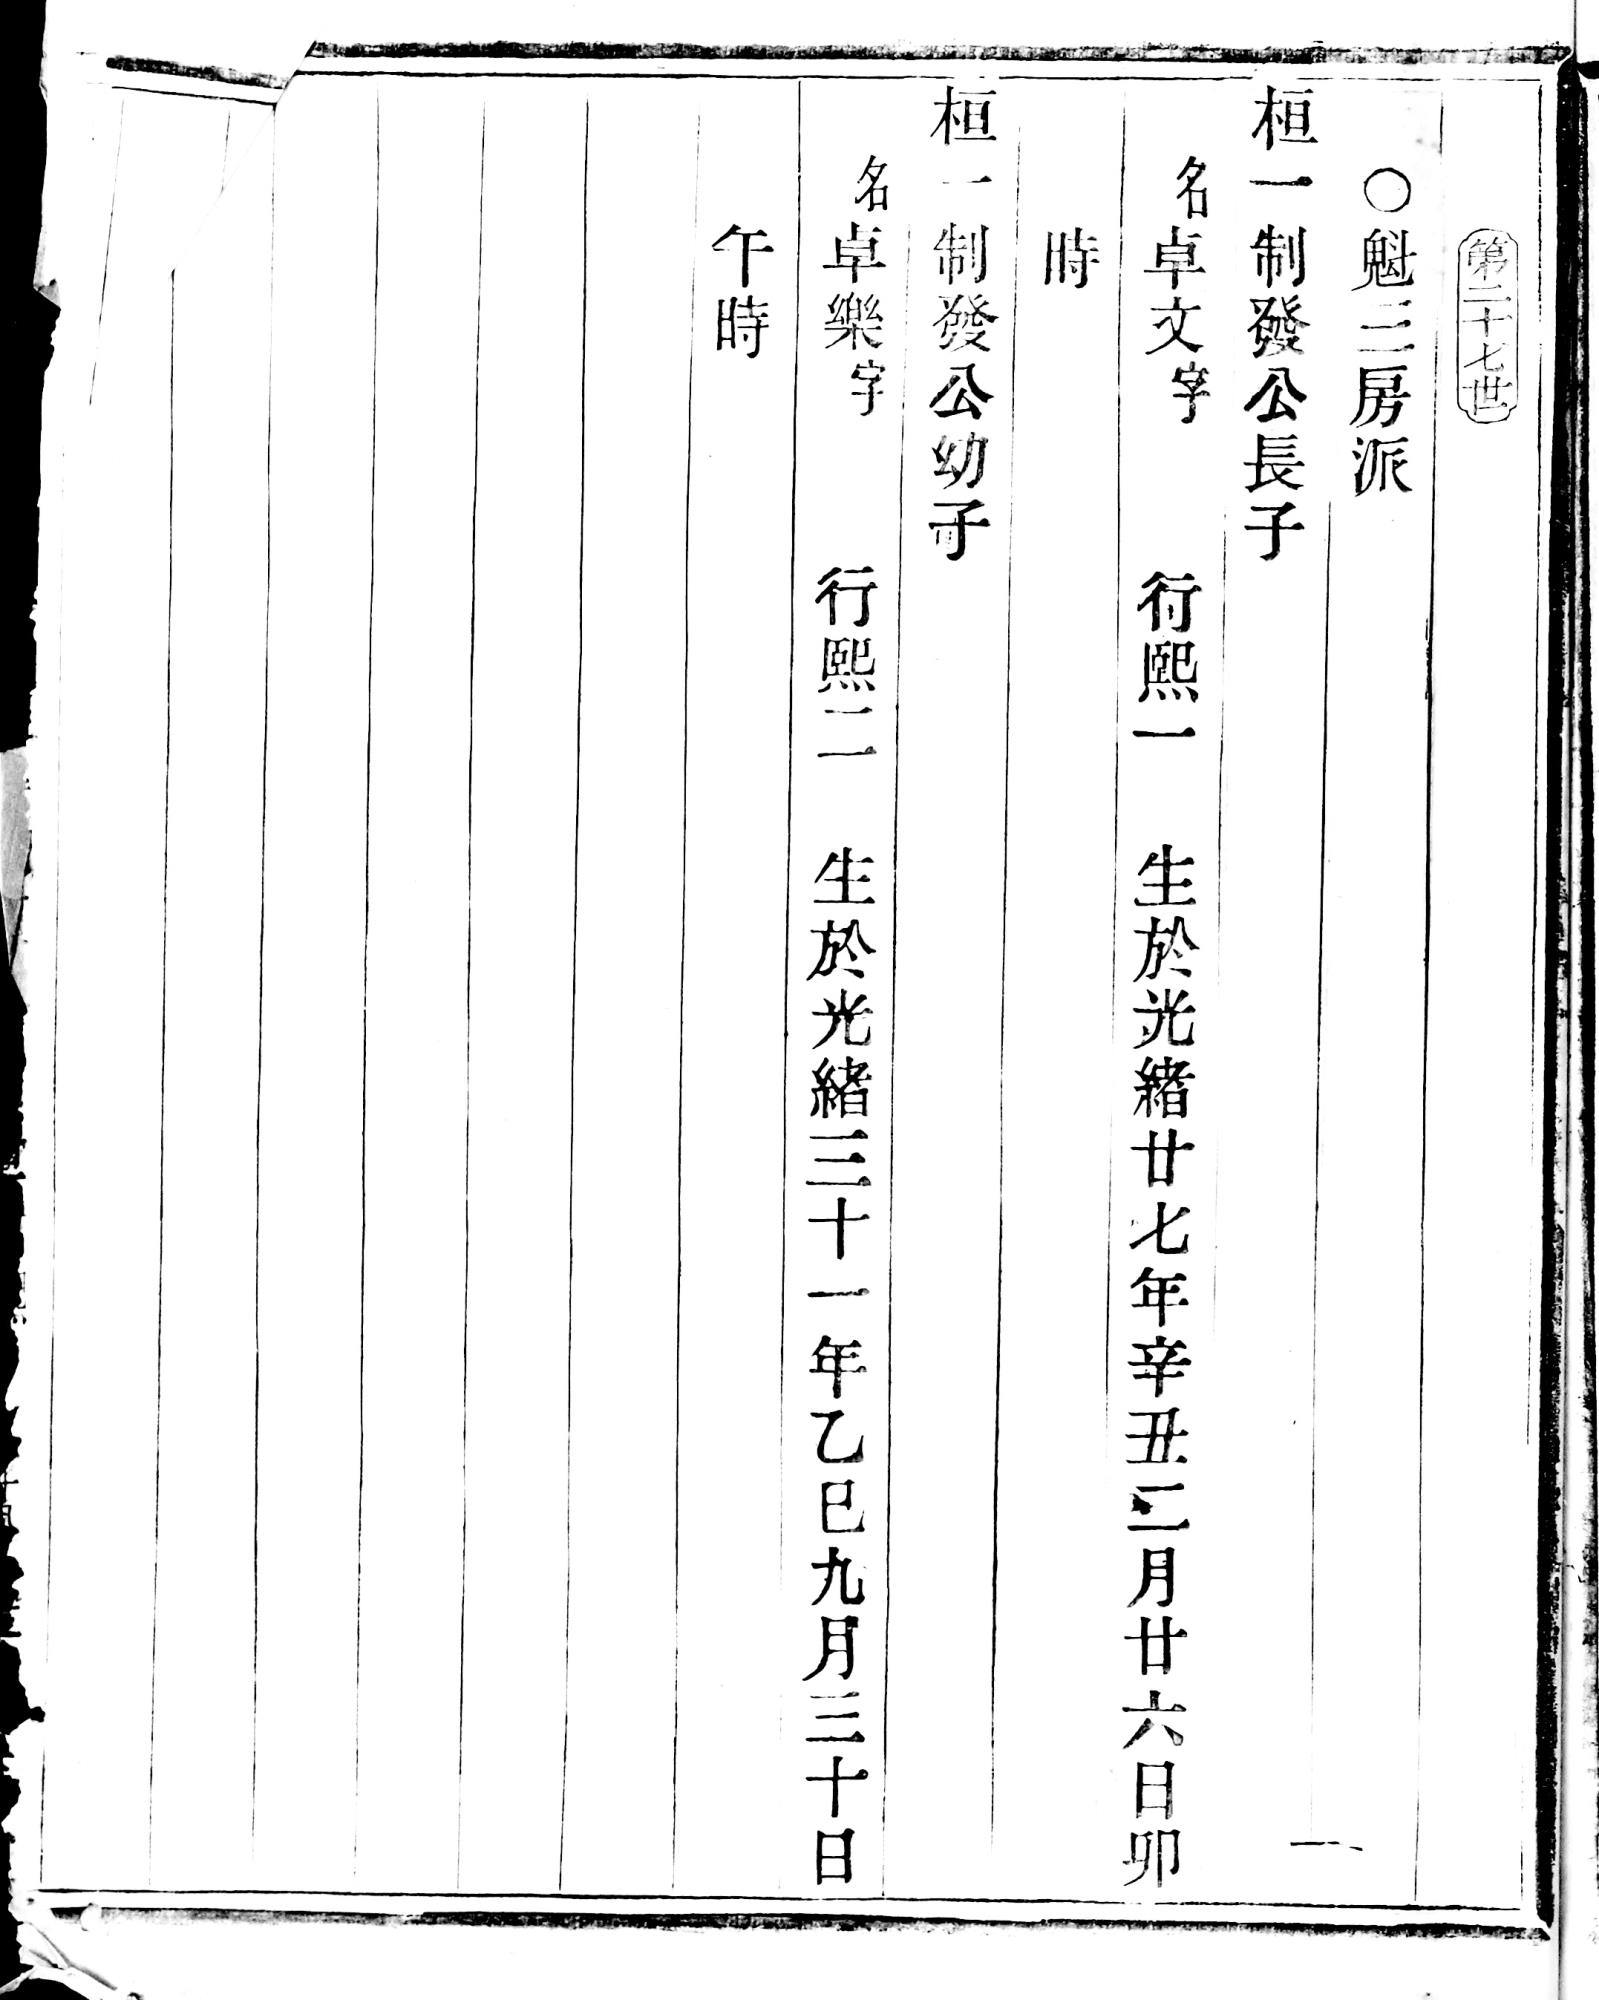 第二十七世
○魁三房派
桓一制發公長子
名卓文字　行熙一　生於光緒廿七年辛丑二月廿六日卯
時
桓一制發公幼子
名卓樂字　行熙二　生於光緒三十一年乙巳九月三十日
午時